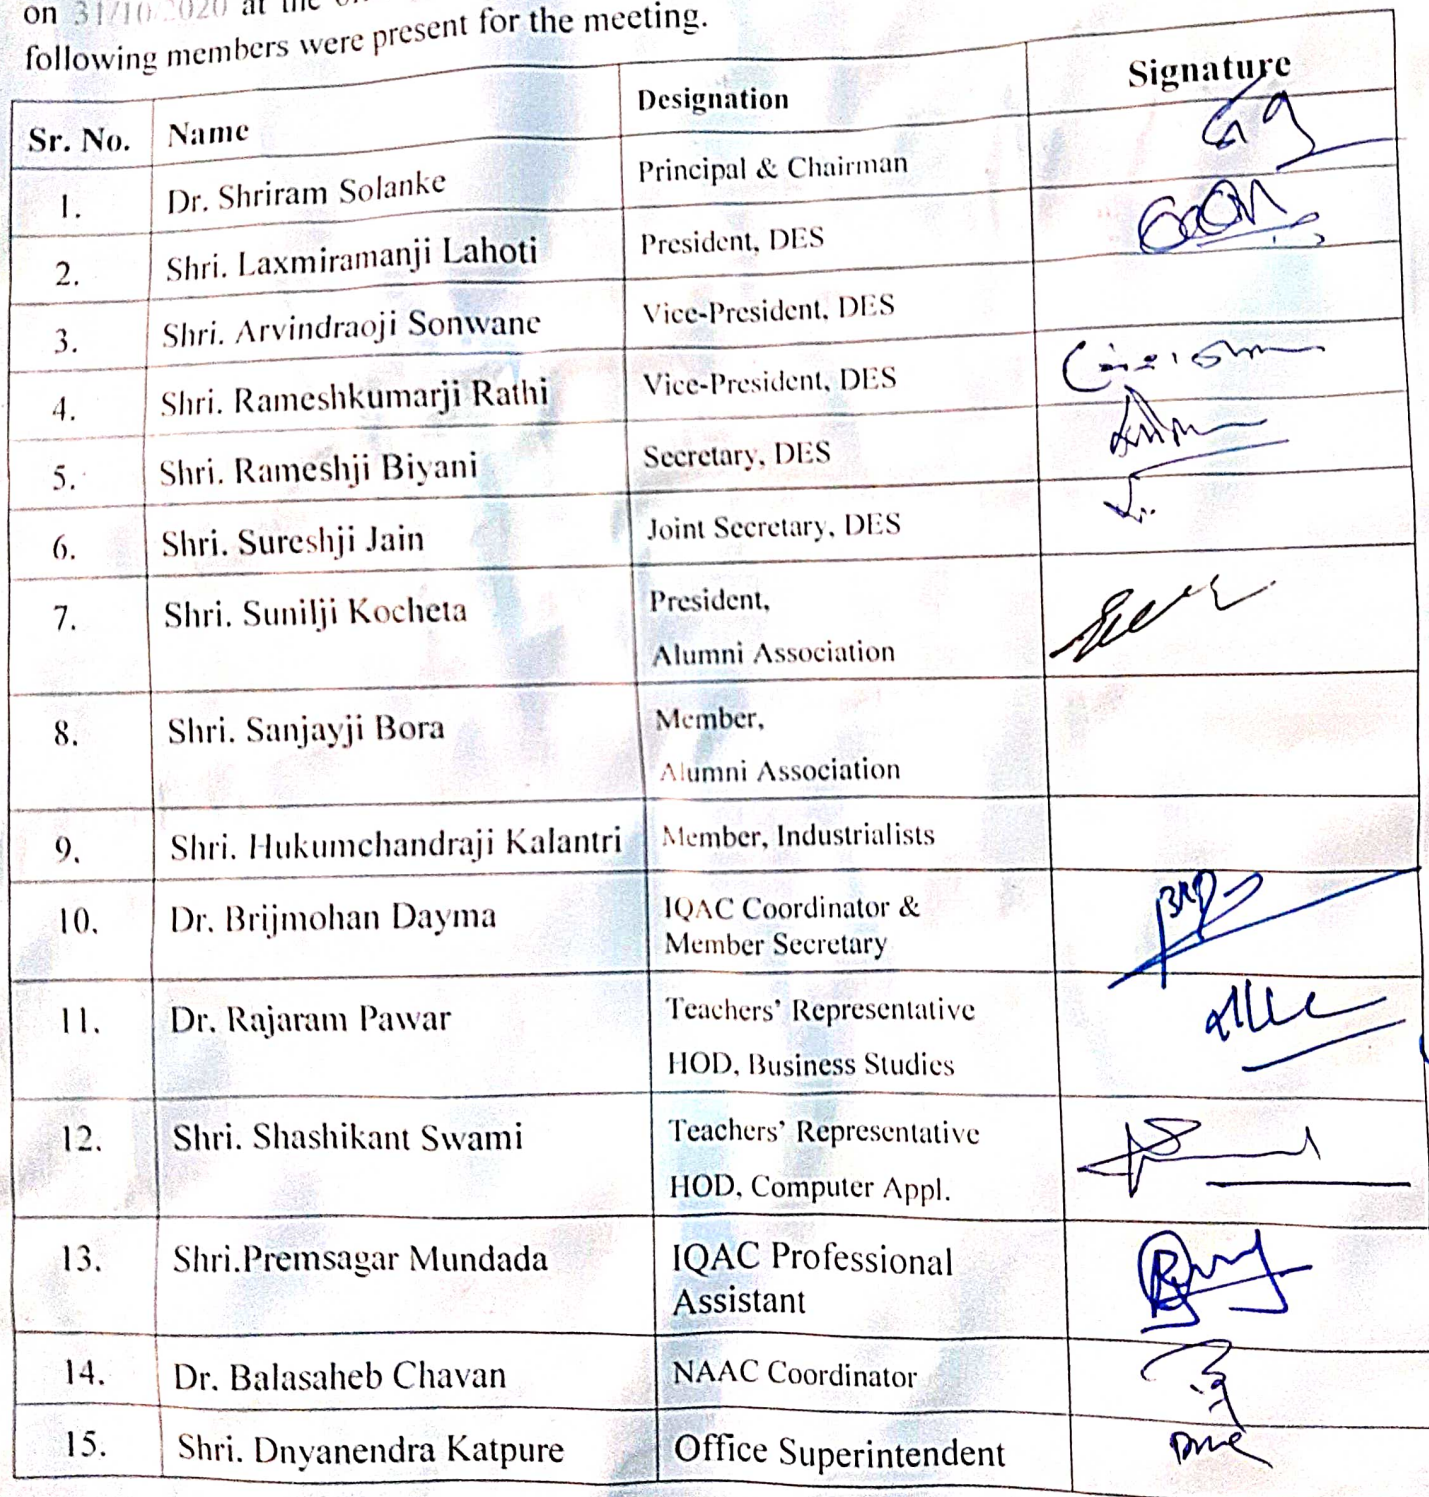 on 31/10/2020 at the
following members were present for the meeting.
Sr. No. Name Designation Signature
1. Dr. Shriram Solanke Principal & Chairman
2. Shri. Laxmiramanji Lahoti President, DES
3. Shri. Arvindraoji Sonwane Vice-President, DES
4. Shri. Rameshkumarji Rathi Vice-President, DES
5. Shri. Rameshji Biyani Secretary, DES
6. Shri. Sureshji Jain Joint Secretary, DES
7. Shri. Sunilji Kocheta President,
Alumni Association
8. Shri. Sanjayji Bora Member,
Alumni Association
9. Shri. Hukumchandraji Kalantri Member, Industrialists
10. Dr. Brijmohan Dayma IQAC Coordinator &
Member Secretary
11. Dr. Rajaram Pawar Teachers' Representative
HOD, Business Studies
12. Shri. Shashikant Swami Teachers' Representative
HOD, Computer Appl.
13. Shri.Premsagar Mundada IQAC Professional
Assistant
14. Dr. Balasaheb Chavan NAAC Coordinator
15. Shri. Dnyanendra Katpure Office Superintendent